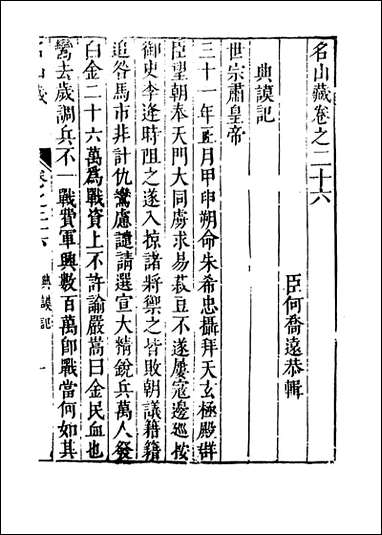 名山藏卷之二十六
臣何喬遠恭輯
典謨記
世宗肅皇帝
三十一年正月甲申朔命朱希忠攝拜天玄極殿群
臣望朝奉天門大同虜求易菽豆不遂屢寇邊巡按
御史李逢時阻之遂入掠諸將禦之皆敗朝議籍籍
追咎馬市非計仇鸞慮譴請選宣大精銳兵萬人發
白金二十六萬為戰資上不許諭嚴嵩曰金民血也
鸞去歲調兵不一戰費軍興數百萬即戰當何如其
名山藏
卷之二十六
典謨記
一